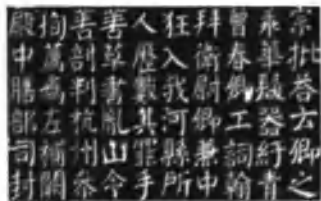 宗批答云卿之
乘華器紆青
曾春工詞翰
拜衛尉卿兼中
狂入我河縣所
人歷數其罪手
善草書亂山令
善剖判杭州參
拘薦為左補闕
殿中膳部司封